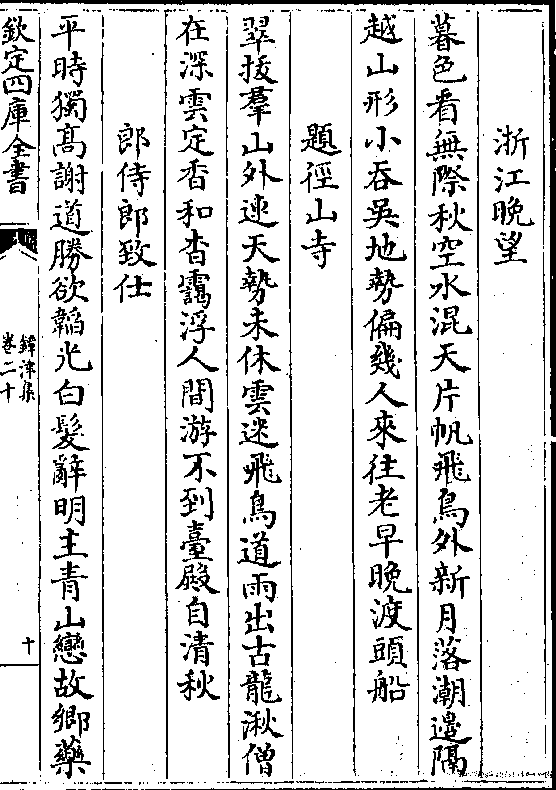 浙江晚望
暮色看無際秋空水混天片帆飛鳥外新月落潮邉隔
越山形小吞吳地勢偏幾人來往老早晚渡頭船
題徑山寺
翠拔羣山外連天勢未休雲迷飛鳥道雨出古龍湫僧
在深雲定香和杳靄浮人間游不到臺殿自清秋
郎侍郎致仕
平時獨髙謝道勝欲韜光白髮辭明主青山戀故鄉藥
欽定四庫全書
鐔津集
卷二十
十